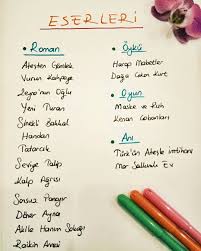 ESERLERİ
Roman
Ateşten Gömlek
Vurun Kahpeye
Zeyno'nun Oğlu
Yeni Turan
Sinekli Bakkal
Handan
Tatarcık
Seviye Talip
Kalp Ağrısı
Sonsuz Panayır
Döner Ayna
Akile Hanım Sokağı
Raik'in Annesi
Öykü
Harap Mabetler
Dağa Çıkan Kurt
Oyun
Maske ve Ruh
Kenan Çobanları
Anı
Türk'ün Ateşle imtihanı
Mor Salkımlı Ev